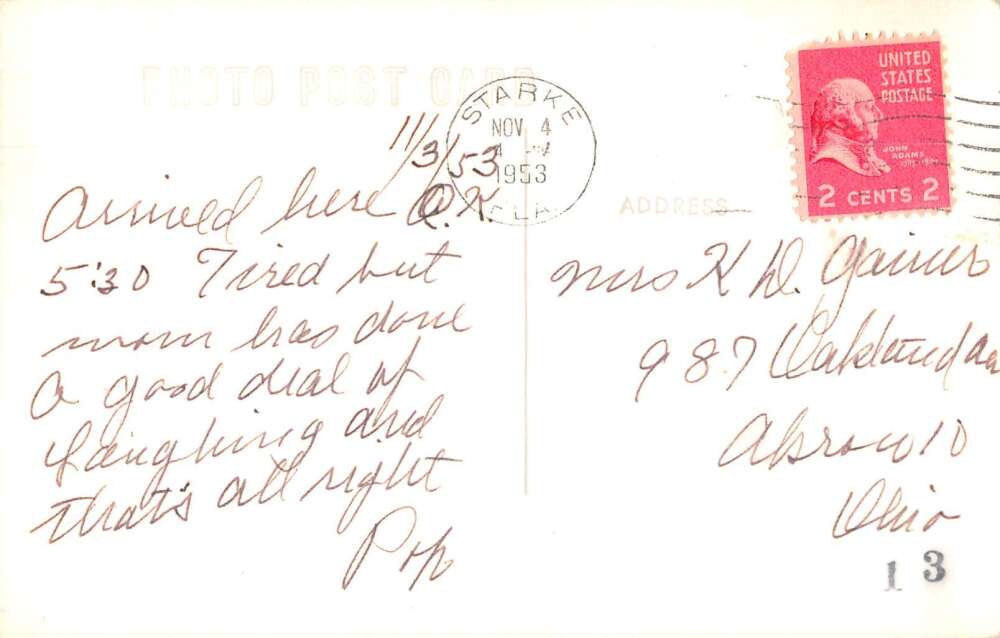 PHOTO POST CARD
11/3/53
Arrived here O.K.
5:30 Tired but
mom has done
a good deal of
laughing and
that's all right
Pop
STARKE
NOV 4
1953
FLA.
UNITED
STATES
POSTAGE
JOHN
ADAMS
2 CENTS 2
ADDRESS
Mrs K D. Gainer
987 Oakland Av
Akron 10
Ohio
1 3